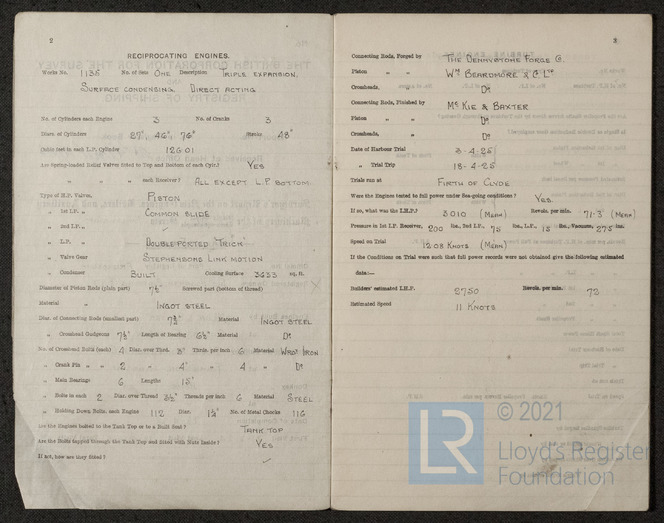 2
RECIPROCATING ENGINES.
Works No. 1135 No. of Sets ONE Description TRIPLE EXPANSION.
SURFACE CONDENSING, DIRECT ACTING
No. of Cylinders each Engine 3 No. of Cranks 3
Diars. of Cylinders 27", 46", 76" Stroke 48"
Cubic feet in each L.P. Cylinder 126.01
Are Spring-loaded Relief Valves fitted to Top and Bottom of each Cylr.? YES
" " " each Receiver? ALL EXCEPT L.P. BOTTOM
Type of H.P. Valves, PISTON
" 1st I.P. " COMMON SLIDE
" 2nd I.P. "
" L.P. " DOUBLE-PORTED "TRICK"
" Valve Gear STEPHENSONS LINK MOTION
" Condenser BUILT Cooling Surface 3633 sq. ft.
Diameter of Piston Rods (plain part) 7½" Screwed part (bottom of thread)
Material INGOT STEEL
Diar. of Connecting Rods (smallest part) Material INGOT STEEL
" Crosshead Gudgeons 7½" Length of Bearing Material Do
No. of Crosshead Bolts (each) 4 Diar. over Thrd. 3" Thrds. per inch 6 Material WROT IRON
" Crank Pin " " 2 " 4" " 4 " Do
" Main Bearings 6 Lengths 15"
" Bolts in each 2 Diar. over Thread 3½" Threads per inch 6 Material STEEL
" Holding Down Bolts, each Engine 112 Diar. No. of Metal Chocks 116
Are the Engines bolted to the Tank Top or to a Built Seat? TANK TOP
Are the Bolts tapped through the Tank Top and fitted with Nuts Inside? YES
If not, how are they fitted?
3
Connecting Rods, Forged by THE DENNYSTOWN FORGE Co.
Piston " " Wm BEARDMORE & Co LTD
Crossheads, " Do
Connecting Rods, Finished by McKIE & BAXTER
Piston " " Do
Crossheads, " Do
Date of Harbour Trial 3-4-25
" Trial Trip 18-4-25
Trials run at FIRTH OF CLYDE
Were the Engines tested to full power under Sea-going conditions? YES.
If so, what was the I.H.P.? 3010 (MEAN) Revols. per min. 71.3 (MEAN)
Pressure in 1st I.P. Receiver, 200 lbs., 2nd I.P., 75 lbs., L.P., 15 lbs., Vacuum, 27.5 ins.
Speed on Trial 12.08 KNOTS (MEAN)
If the Conditions on Trial were such that full power records were not obtained give the following estimated
data:—
Builders' estimated I.H.P. 2750 Revols. per min. 72
Estimated Speed 11 KNOTS
LR
© 2021
Lloyd's Register
Foundation